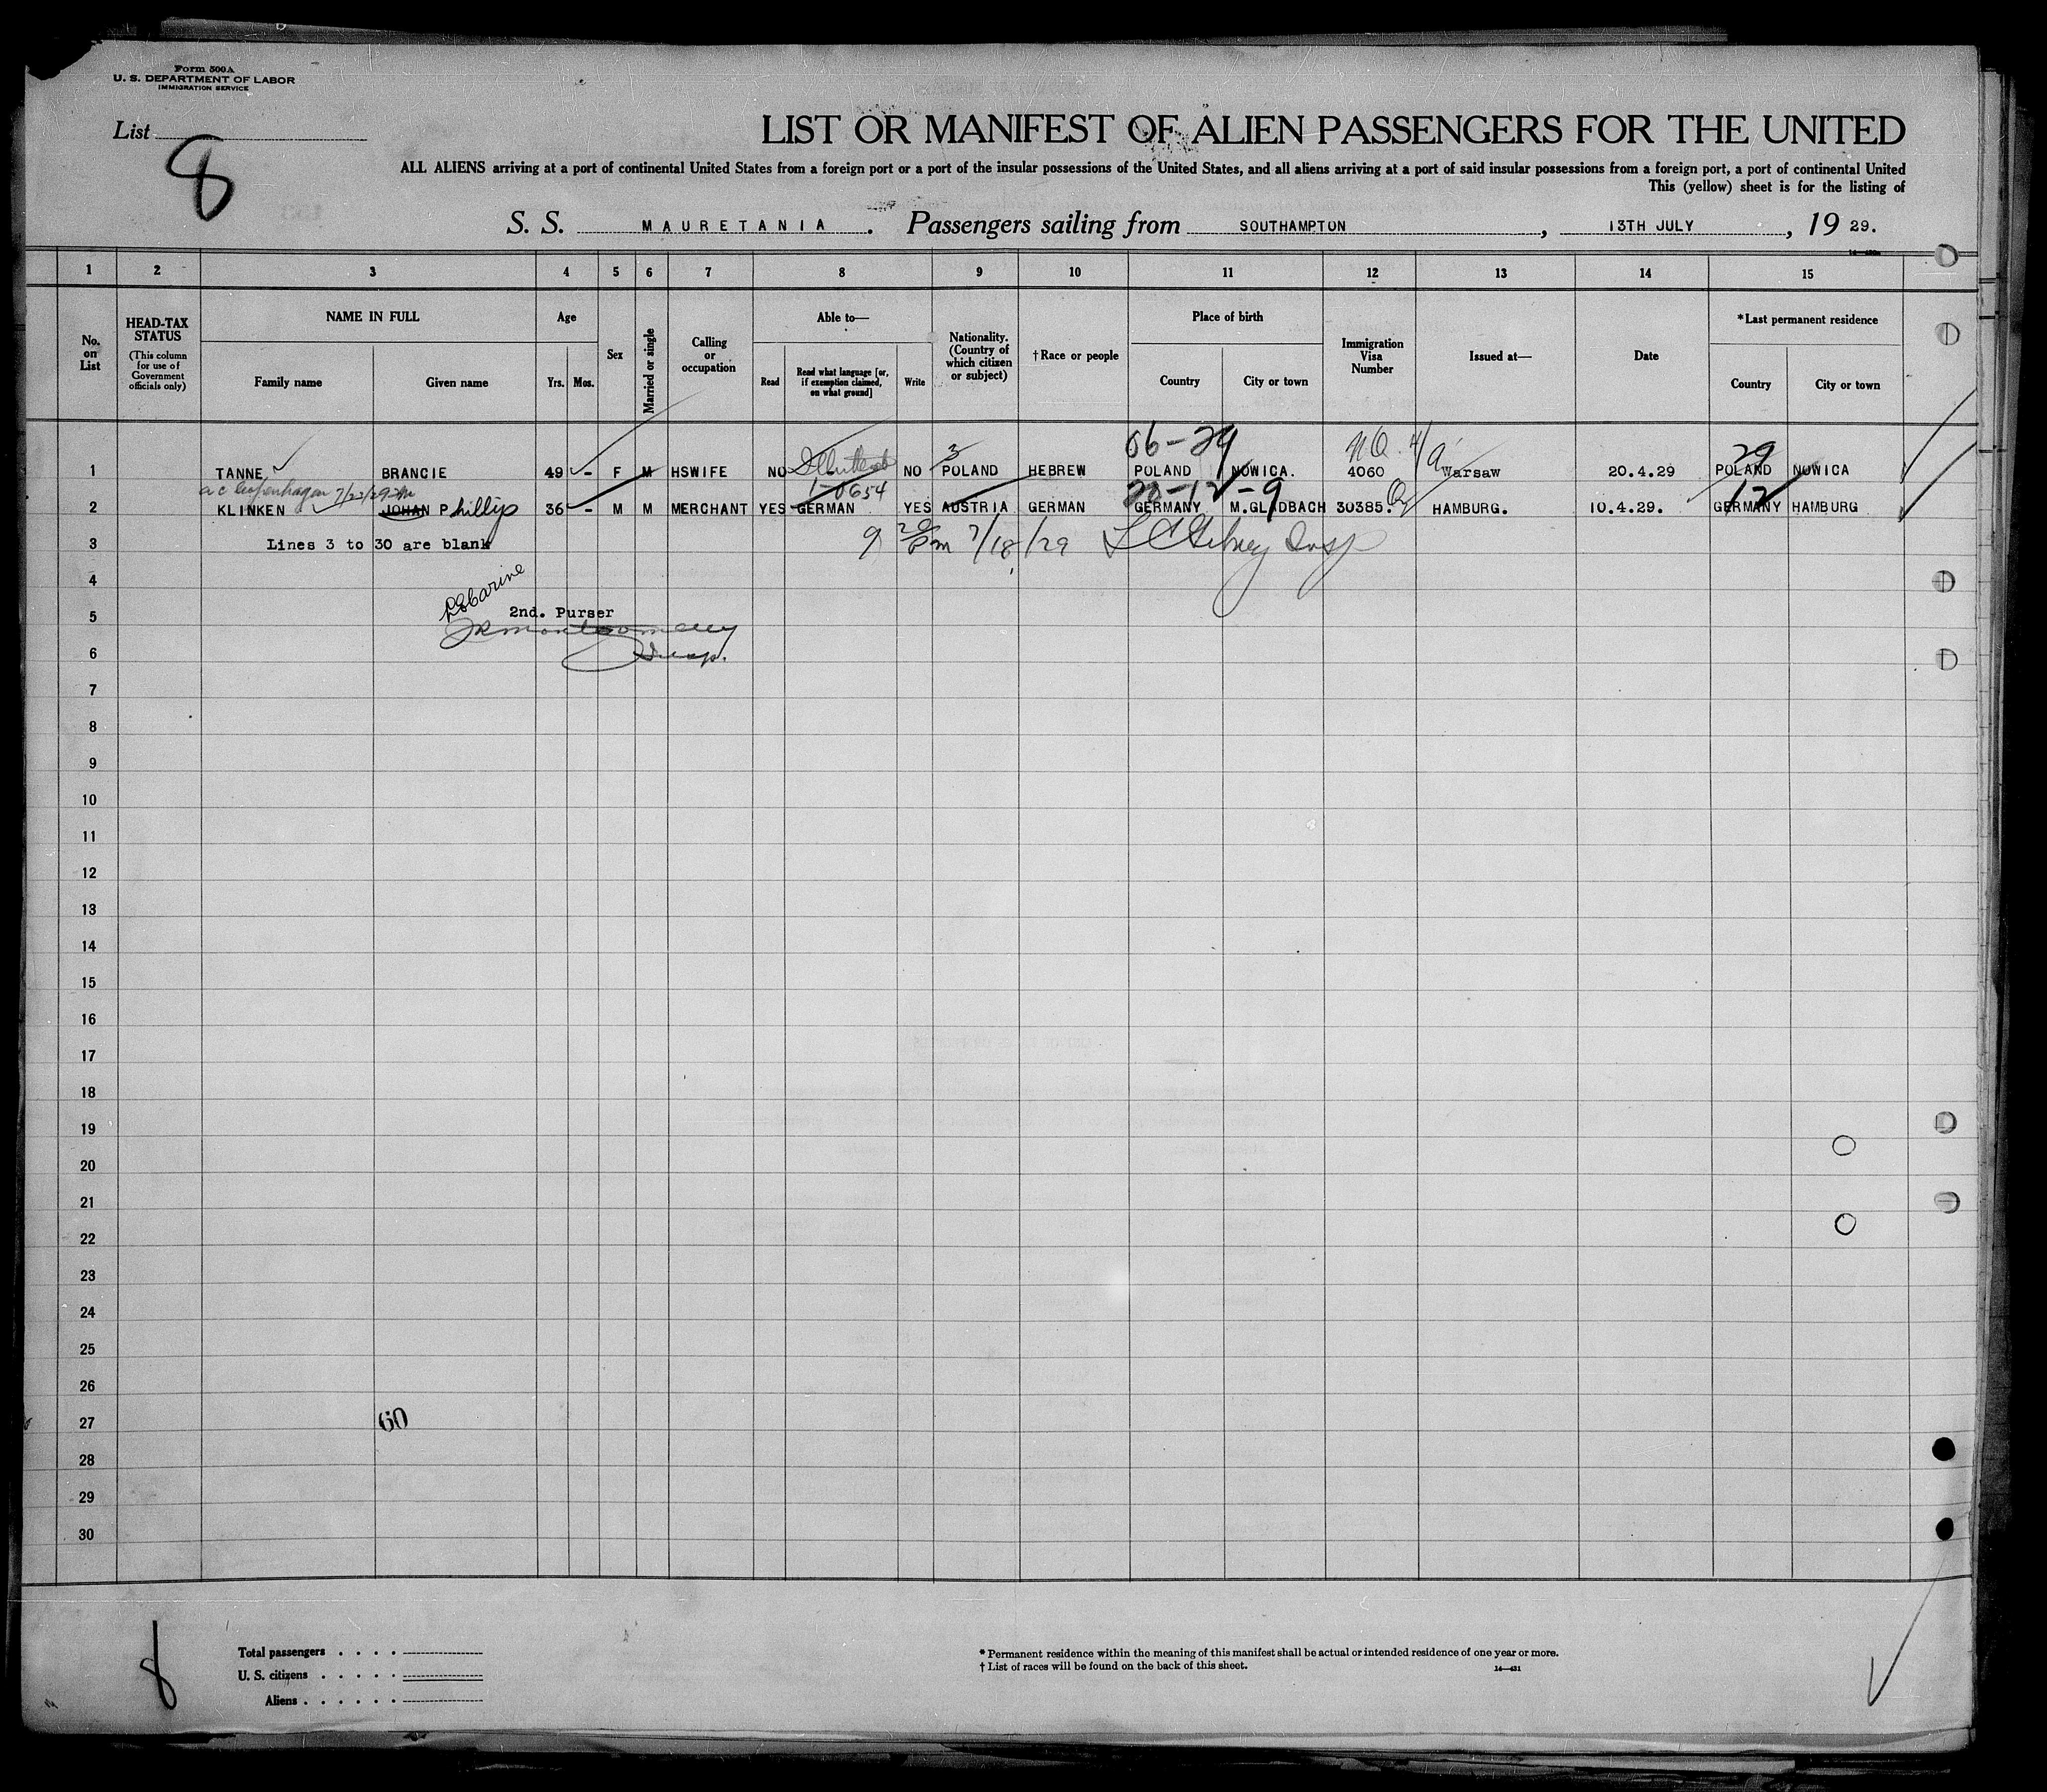 Form 500 A
U. S. DEPARTMENT OF LABOR
IMMIGRATION SERVICE
List
8
LIST OR MANIFEST OF ALIEN PASSENGERS FOR THE UNITED
ALL ALIENS arriving at a port of continental United States from a foreign port or a port of the insular possessions of the United States, and all aliens arriving at a port of said insular possessions from a foreign port, a port of continental United
This (yellow) sheet is for the listing of
S. S. MAURETANIA. Passengers sailing from SOUTHAMPTON, 13TH JULY, 19 29.
1 2 3 4 5 6 7 8 9 10 11 12 13 14 15
No. on List
HEAD-TAX STATUS
(This column for use of Government officials only)
NAME IN FULL
Family name Given name
Age
Yrs. Mos.
Sex
Married or single
Calling or occupation
Able to—
Read Read what language [or, if exemption claimed, on what ground] Write
Nationality. (Country of which citizen or subject)
†Race or people
Place of birth
Country City or town
Immigration Visa Number
Issued at—
Date
*Last permanent residence
Country City or town
66-29 NQ 29
1 TANNE BRANCIE 49 - F M HSWIFE NO NO POLAND HEBREW POLAND NOWICA. 4060 Warsaw 20.4.29 POLAND NOWICA
7/22/29 1-0654 12
2 KLINKEN JOHAN Phillip 36 - M M MERCHANT YES GERMAN YES AUSTRIA GERMAN GERMANY M.GLADBACH 30385. HAMBURG. 10.4.29. GERMANY HAMBURG
3 Lines 3 to 30 are blank 9 20 Pm 7/18/29
4
5 2nd. Purser
6
7
8
9
10
11
12
13
14
15
16
17
18
19
20
21
22
23
24
25
26
27 60
28
29
30
8
Total passengers . . . .
U. S. citizens . . . . .
Aliens . . . . . .
* Permanent residence within the meaning of this manifest shall be actual or intended residence of one year or more.
† List of races will be found on the back of this sheet. 14—431